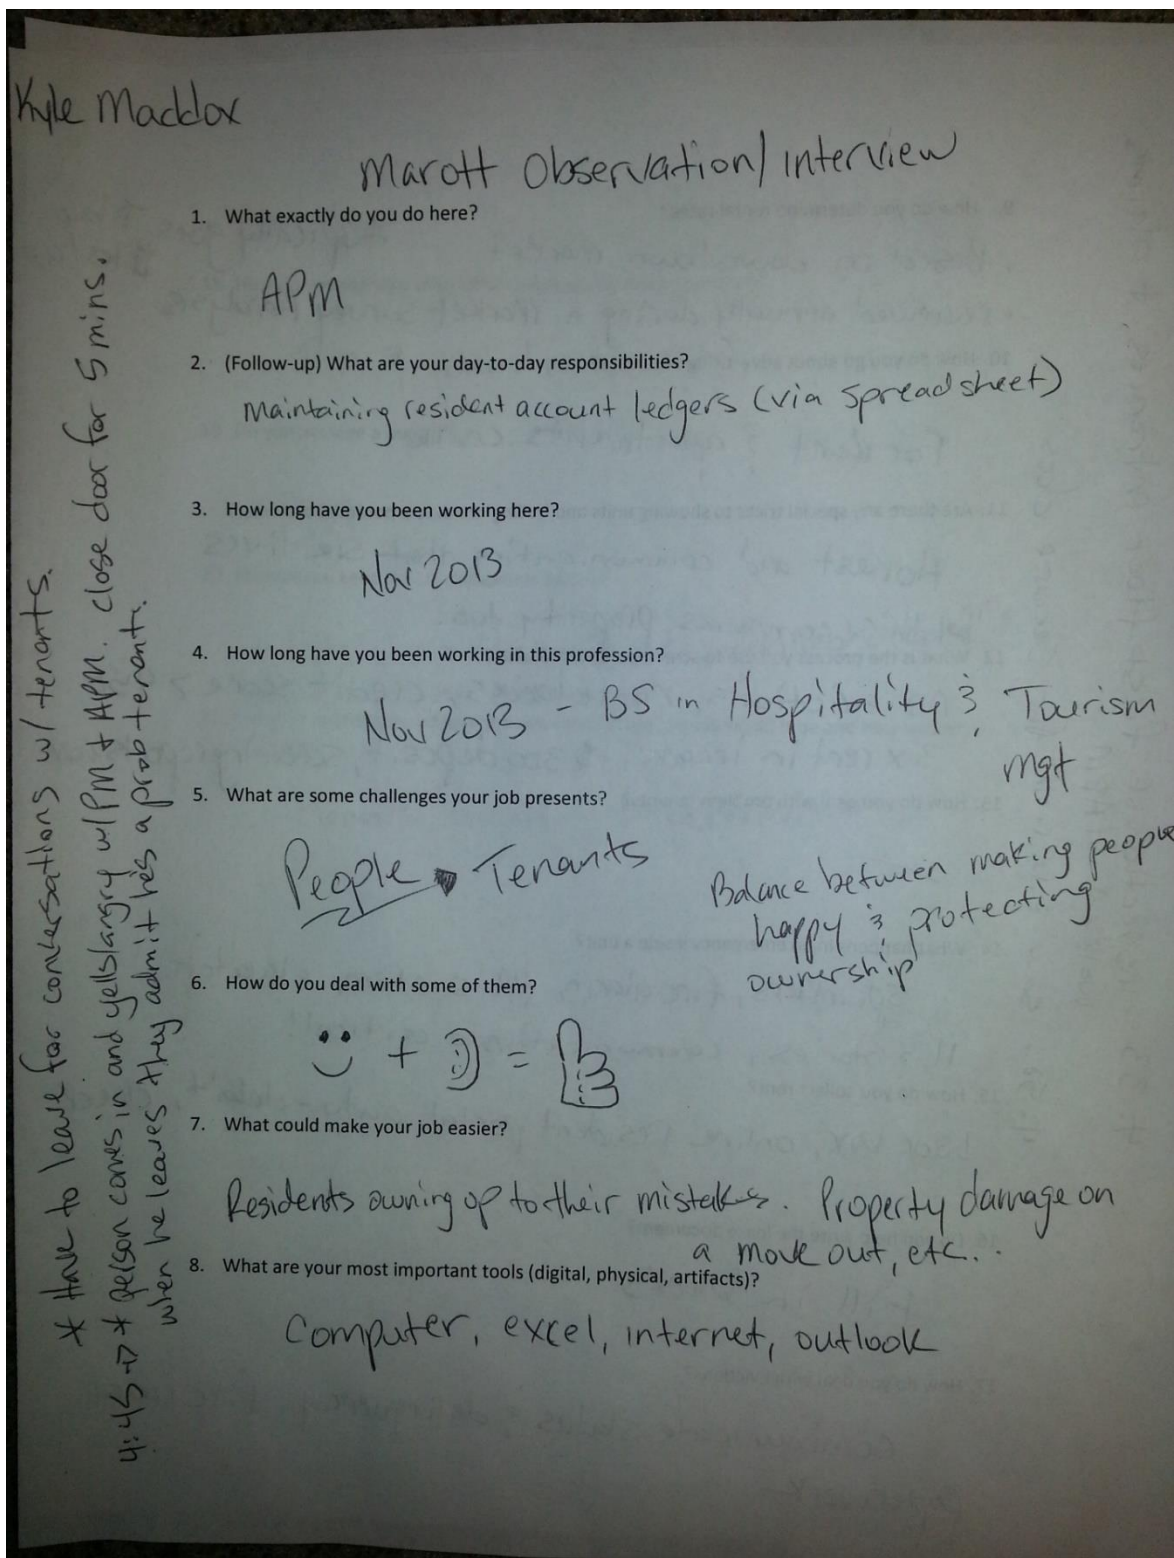 Kyle Maddox
Marott Observation/Interview
1. What exactly do you do here?
APM
2. (Follow-up) What are your day-to-day responsibilities?
Maintaining resident account ledgers (via spreadsheet)
3. How long have you been working here?
Nov 2013
4. How long have you been working in this profession?
Nov 2013 - BS in Hospitality & Tourism
mgt
5. What are some challenges your job presents?
People Tenants
Balance between making people
happy & protecting
ownership
6. How do you deal with some of them?
+ =
7. What could make your job easier?
Residents owning up to their mistakes. Property damage on
a move out, etc..
8. What are your most important tools (digital, physical, artifacts)?
Computer, excel, internet, outlook
* Have to leave for conversations w/ tenants.
4:45 → * person comes in and yells/angry w/ PM + APM. close door for 5 mins.
when he leaves they admit he's a prob tenant.